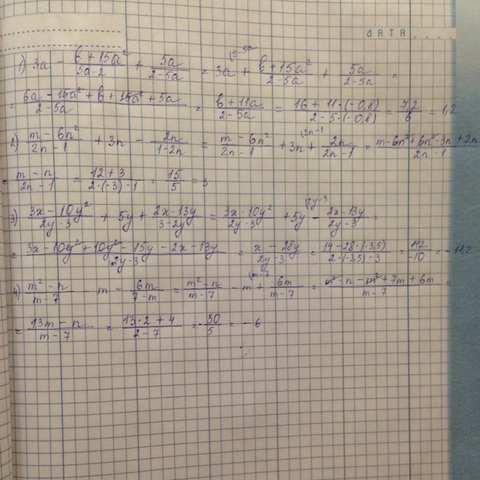 ДАТА
1) 3a - (b + 15a²)/(5a - 2) + 5a/(2 - 5a) = 3a + (b + 15a²)/(2 - 5a) + 5a/(2 - 5a) =
= (6a - 15a² + b + 15a² + 5a)/(2 - 5a) = (b + 11a)/(2 - 5a) = (16 + 11·(-0,8))/(2 - 5·(-0,8)) = 7,2/6 = 1,2
2) (m - 6n²)/(2n - 1) + 3n - 2n/(1 - 2n) = (m - 6n²)/(2n - 1) + 3n + 2n/(2n - 1) = (m - 6n² + 6n² - 3n + 2n)/(2n - 1)
= (m - n)/(2n - 1) = (12 + 3)/(2·(-3) - 1) = 15/5 = 3
3) (3x - 10y²)/(2y - 3) + 5y + (2x - 13y)/(3 - 2y) = (3x - 10y²)/(2y - 3) + 5y - (2x - 13y)/(2y - 3) =
= (3x - 10y² + 10y² - 15y - 2x - 13y)/(2y - 3) = (x - 28y)/(2y - 3) = (14 - 28·(-3,5))/(2·(-3,5) - 3) = 112/-10 = -11,2
4) (m² - n)/(m - 7) - m - 6m/(7 - m) = (m² - n)/(m - 7) - m + 6m/(m - 7) = (m² - n - m² + 7m + 6m)/(m - 7) =
= (13m - n)/(m - 7) = (13·2 + 4)/(2 - 7) = -30/5 = -6